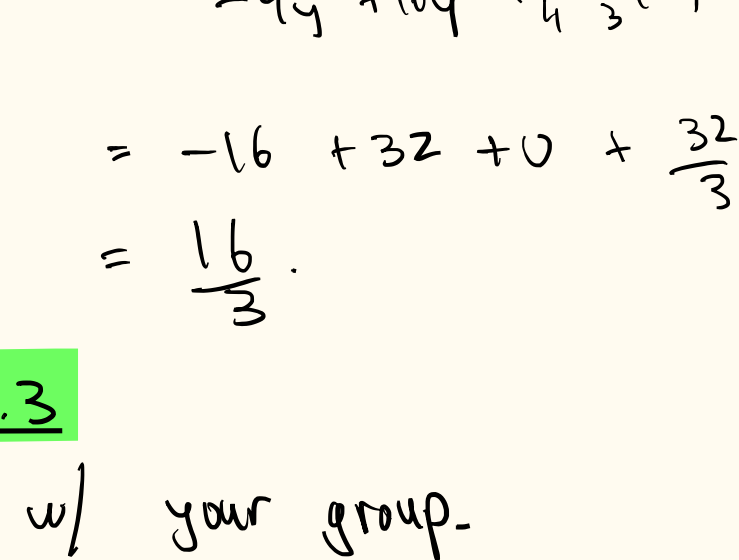 = -16 + 32 + 0 + 32/3
= 16/3.
.3
w/ your group.